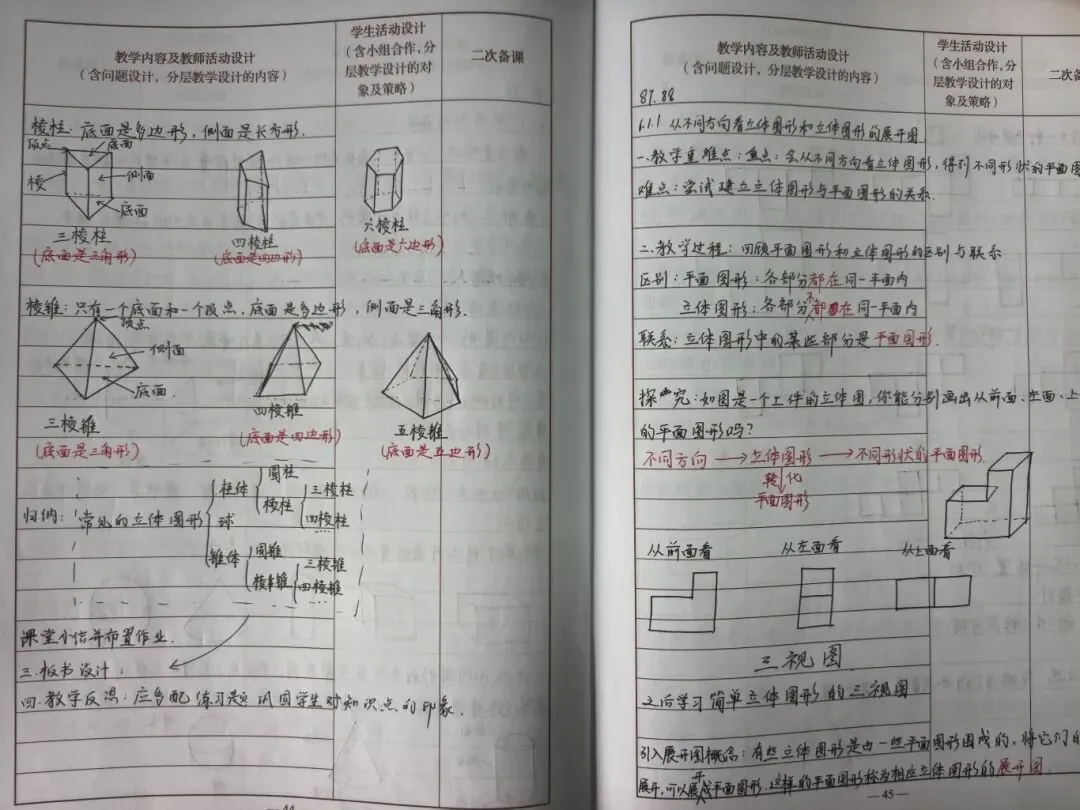 教学内容及教师活动设计
（含问题设计，分层教学设计的内容）
学生活动设计
（含小组合作、分
层教学设计的对
象及策略）
二次备课
棱柱：底面是多边形，侧面是长方形.
顶点
底面
棱
侧面
底面
三棱柱
四棱柱
六棱柱
(底面是三角形)
(底面是四边形)
(底面是六边形)
棱锥：只有一个底面和一个顶点，底面是多边形，侧面是三角形.
顶点
侧面
底面
三棱锥
四棱锥
五棱锥
(底面是三角形)
(底面是四边形)
(底面是五边形)
归纳：常见的立体图形
柱体
圆柱
棱柱
三棱柱
四棱柱
球
锥体
圆锥
棱锥
三棱锥
四棱锥
课堂小结并布置作业.
三.板书设计：
四.教学反思：应多配练习题 巩固学生对知识点的印象.
44
教学内容及教师活动设计
（含问题设计，分层教学设计的内容）
学生活动设计
（含小组合作、分
层教学设计的对
象及策略）
二次备
87.88
6.1.1 从不同方向看立体图形和立体图形的展开图
一.教学重难点：重点：会从不同方向看立体图形，得到不同形状的平面图
难点：尝试建立立体图形与平面图形的关系.
二.教学过程：回顾平面图形和立体图形的区别与联系
区别：平面图形：各部分都在同一平面内
立体图形：各部分不都在同一平面内
联系：立体图形中的某些部分是平面图形.
探究：如图是一个工件的立体图，你能分别画出从前面、左面、上
的平面图形吗？
不同方向→立体图形→不同形状的平面图形.
转化
平面图形
从前面看
从左面看
从上面看
三视图
之后学习简单立体图形的三视图
引入展开图概念：有些立体图形是由一些平面图形围成的，将它们的
展开，可以展开成平面图形.这样的平面图形称为相应立体图形的展开图.
— 45 —